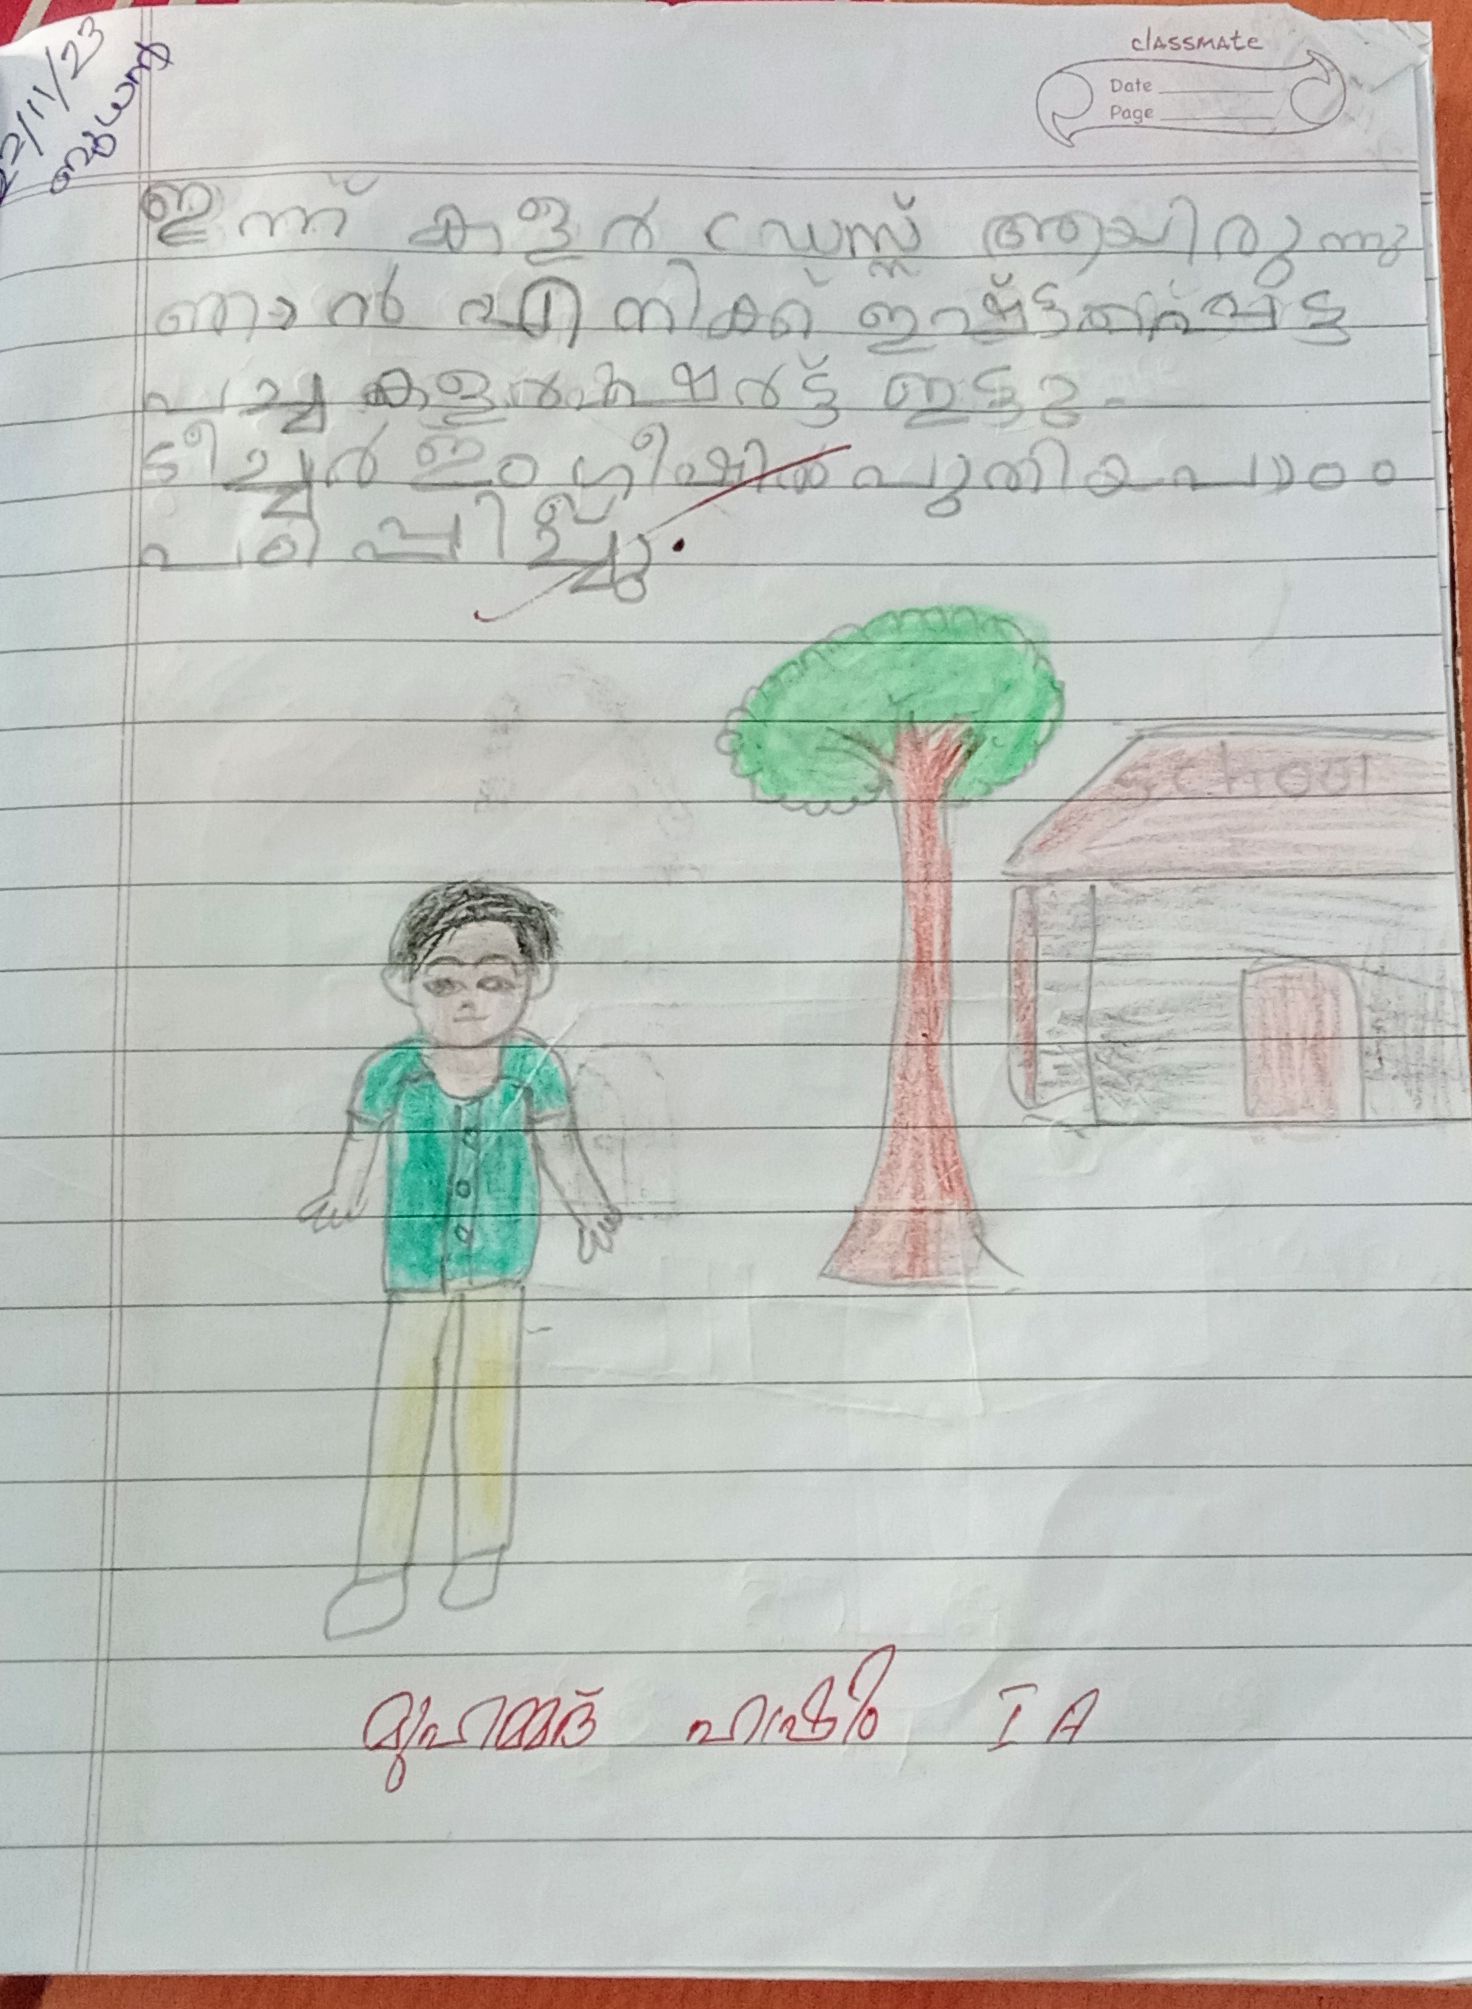 22/11/23
ബുധൻ
classmate
Date
Page
ഇന്ന് കളർ ഡ്രസ്സ് ആയിരുന്നു
ഞാൻ എനിക്ക് ഇഷ്ട്ടപ്പെട്ട
പച്ച കളർ ഷർട്ട് ഇട്ടു.
ടീച്ചർ ഇംഗ്ലീഷിൽ പുതിയ പാഠം
പഠിപ്പിച്ചു.
school
മുഹമ്മദ് I A